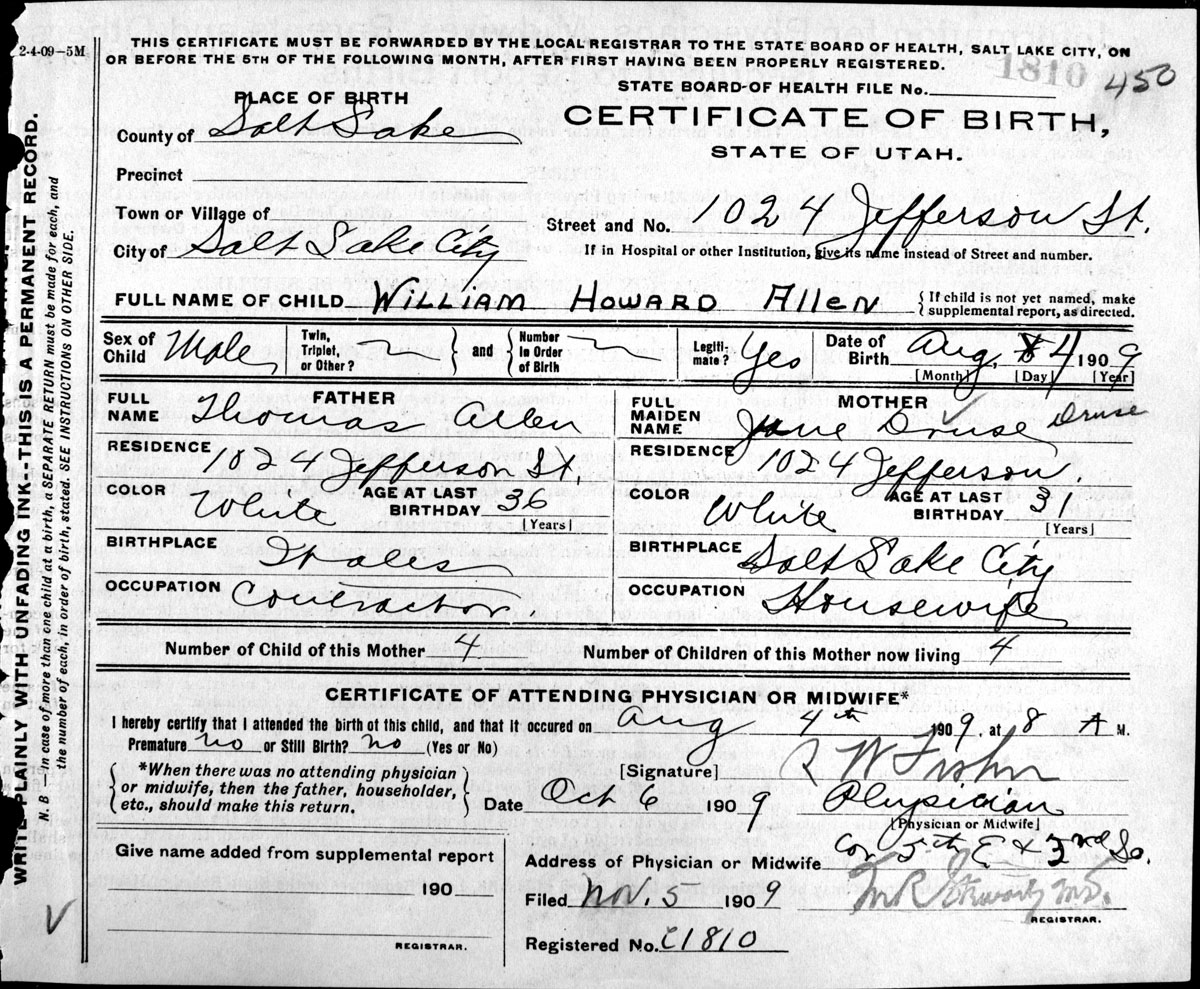 2-4-09—5M
THIS CERTIFICATE MUST BE FORWARDED BY THE LOCAL REGISTRAR TO THE STATE BOARD OF HEALTH, SALT LAKE CITY, ON
OR BEFORE THE 5TH OF THE FOLLOWING MONTH, AFTER FIRST HAVING BEEN PROPERLY REGISTERED.
1810 450
STATE BOARD OF HEALTH FILE No.
PLACE OF BIRTH
CERTIFICATE OF BIRTH,
STATE OF UTAH.
County of Salt Lake
Precinct
Town or Village of
Street and No. 1024 Jefferson St.
City of Salt Lake City
If in Hospital or other Institution, give its name instead of Street and number.
FULL NAME OF CHILD William Howard Allen { If child is not yet named, make
supplemental report, as directed.
Sex of Child Male Twin, Triplet, or Other? } and { Number in Order of Birth Legiti-mate? Yes Date of Birth Aug, 4 1909
[Month] [Day] [Year]
FATHER
FULL NAME Thomas Allen
RESIDENCE 1024 Jefferson St.
COLOR White AGE AT LAST BIRTHDAY 36
[Years]
BIRTHPLACE Wales
OCCUPATION Contractor
MOTHER
FULL MAIDEN NAME Jane Druse Druse
RESIDENCE 1024 Jefferson.
COLOR White AGE AT LAST BIRTHDAY 31
[Years]
BIRTHPLACE Salt Lake City
OCCUPATION Housewife
Number of Child of this Mother 4 Number of Children of this Mother now living 4
CERTIFICATE OF ATTENDING PHYSICIAN OR MIDWIFE*
I hereby certify that I attended the birth of this child, and that it occured on Aug 4th 1909, at 8 A M.
Premature no or Still Birth? no (Yes or No)
{ *When there was no attending physician
or midwife, then the father, householder,
etc., should make this return. }
[Signature] R W Fisher
Date Oct 6 1909 Physician
[Physician or Midwife]
Give name added from supplemental report
190
REGISTRAR.
Address of Physician or Midwife Cor 5th E & 3rd So.
Filed Nov. 5 1909
REGISTRAR.
Registered No. C1810
WRITE PLAINLY WITH UNFADING INK--THIS IS A PERMANENT RECORD.
N. B.—In case of more than one child at a birth, a SEPARATE RETURN must be made for each, and
the number of each, in order of birth, stated. SEE INSTRUCTIONS ON OTHER SIDE.